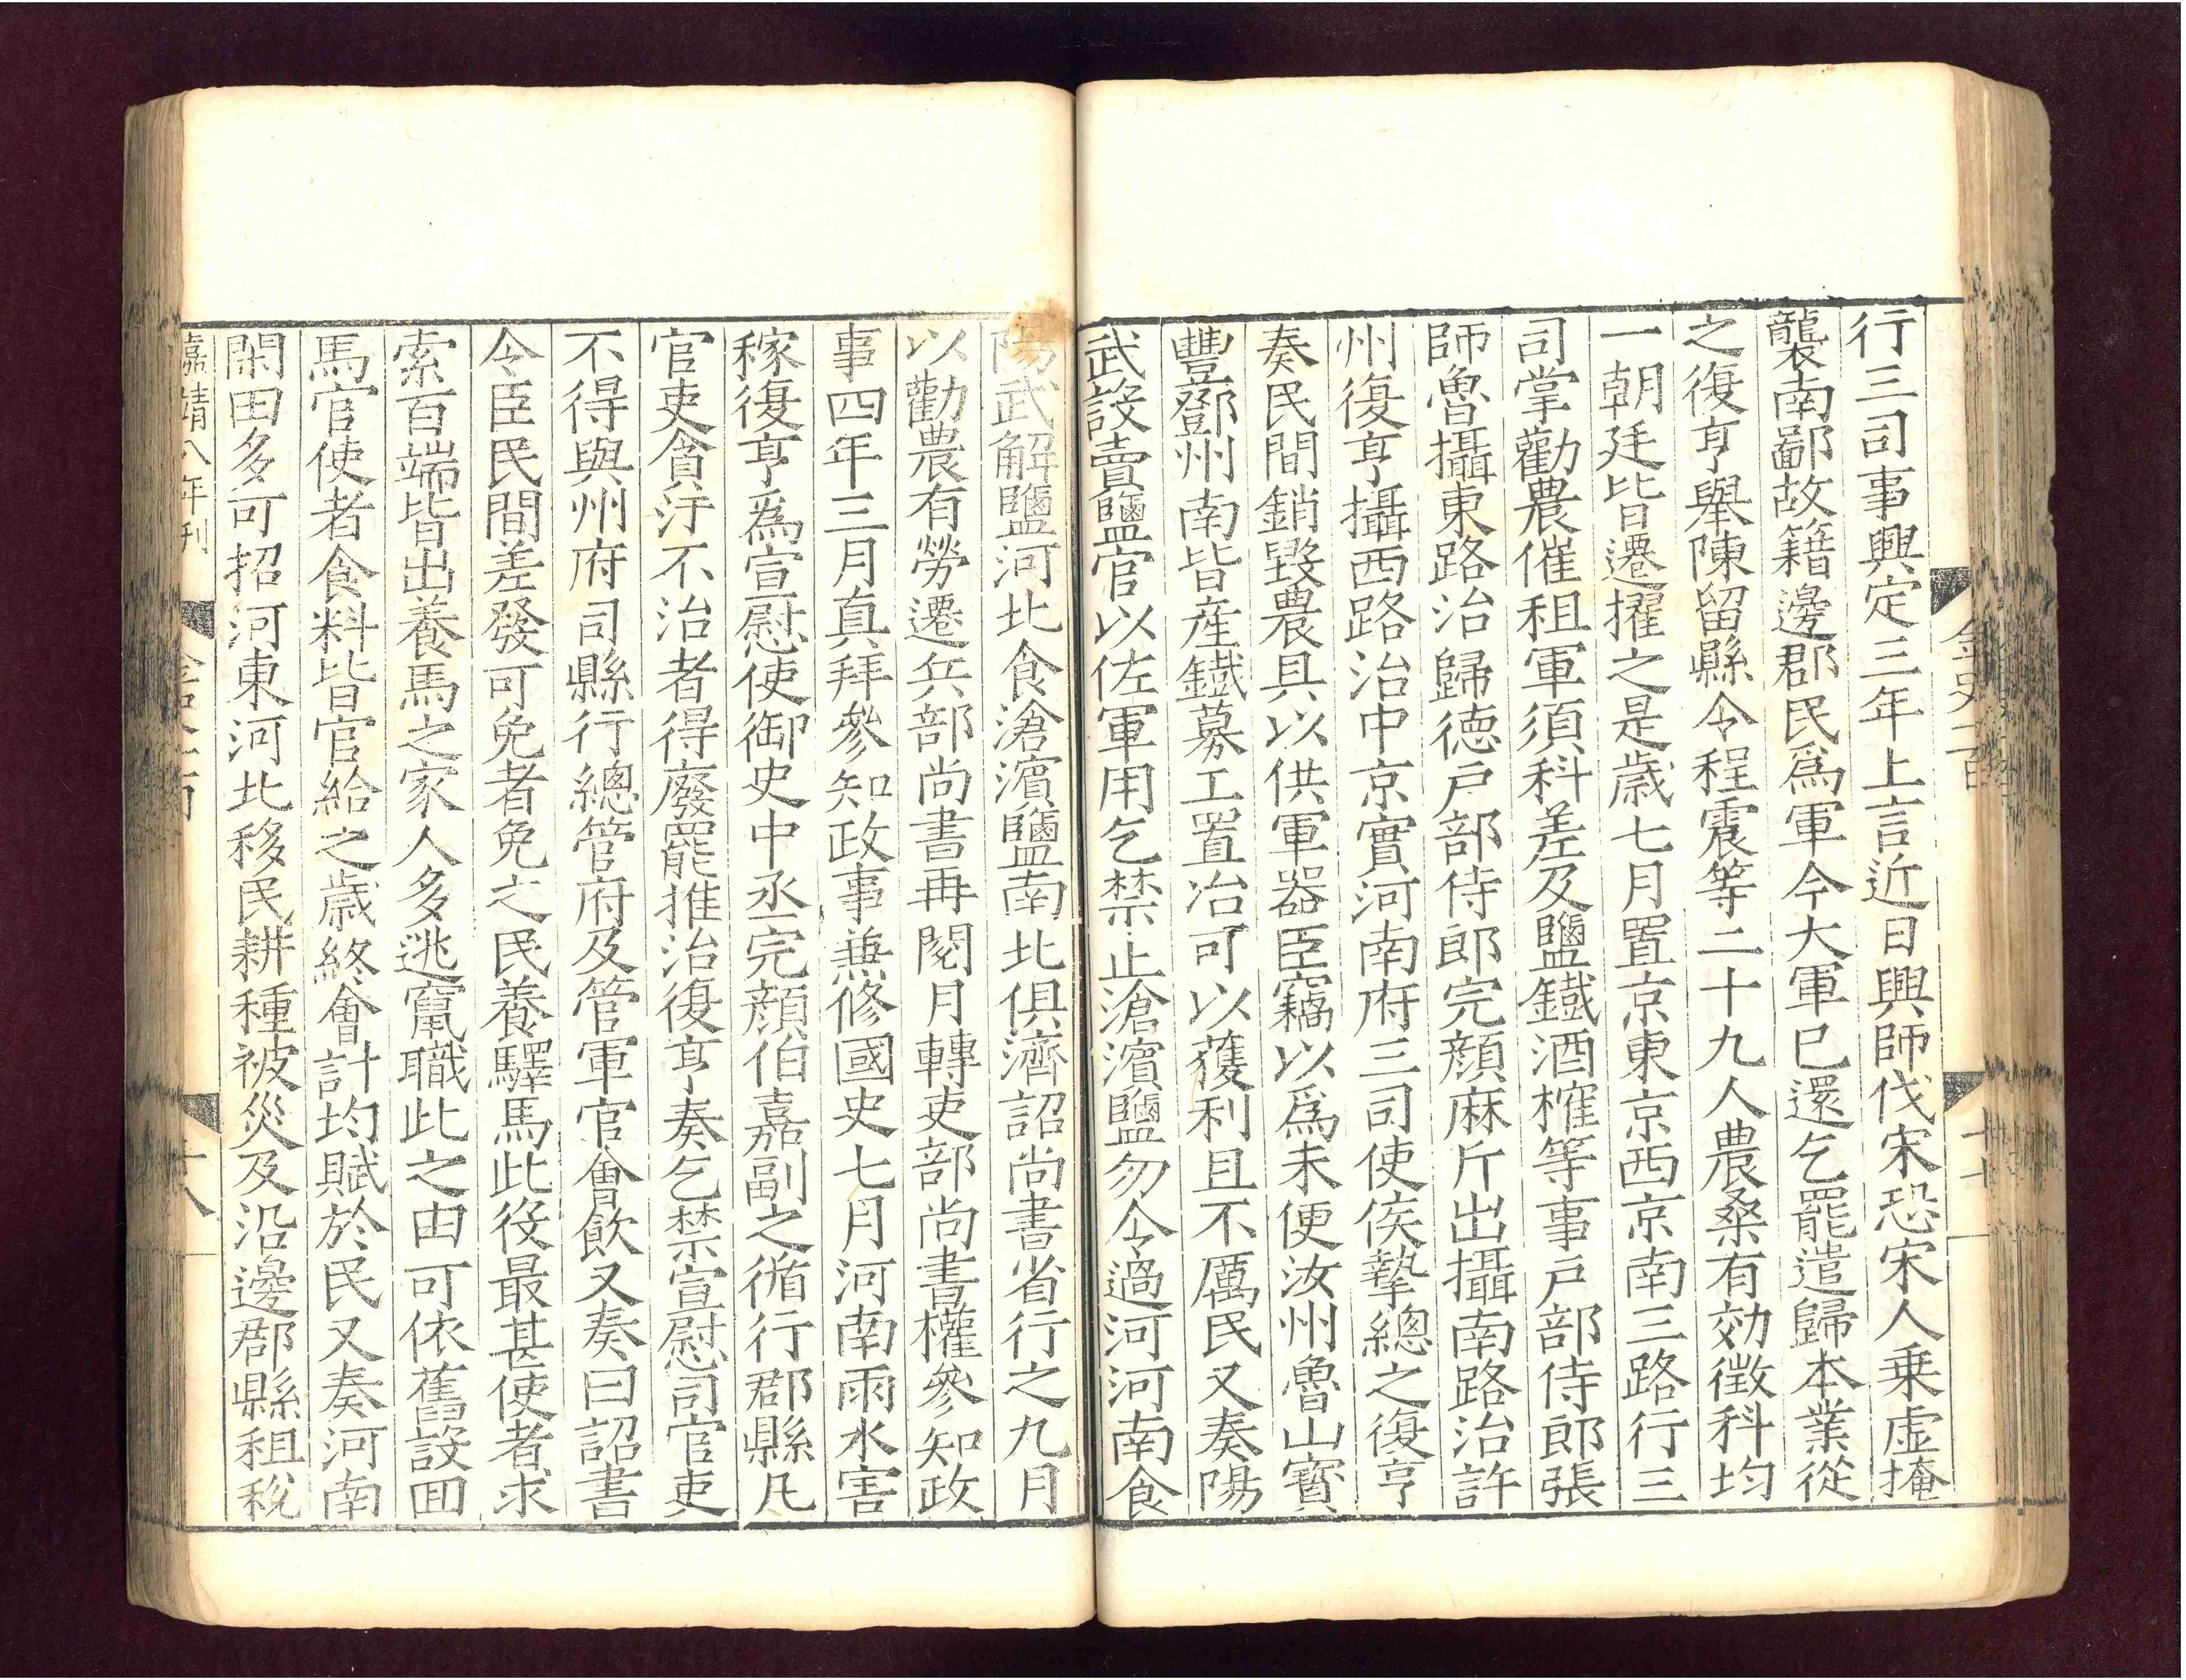 行三司事興定三年上言近日興師伐宋恐宋人乗虚掩
襲南鄙故籍邊郡民爲軍今大軍已還乞罷遣歸本業從
之復亨舉陳留縣令程震等二十九人農桑有効徴科均
一朝廷皆遷擢之是歳七月置京東京西京南三路行三
司掌勸農催租軍須科差及鹽鐵酒榷等事戸部侍郎張
師魯攝東路治歸徳戸部侍郎完顔麻斤出攝南路治許
州復亨攝西路治中京實河南府三司使侯摯總之復亨
奏民間銷毀農具以供軍器臣竊以爲未便汝州魯山寶
豐鄧州南皆産鐵募工置冶可以獲利且不厲民又奏陽
武設賣鹽官以佐軍用乞禁止滄濱鹽勿令過河河南食
陽武解鹽河北食滄濱鹽南北俱濟詔尚書省行之九月
以勸農有勞遷兵部尚書再閱月轉吏部尚書權參知政
事四年三月真拜參知政事兼修國史七月河南雨水害
稼復亨爲宣慰使御史中丞完顔伯嘉副之循行郡縣凡
官吏貪汙不治者得廢罷推治復亨奏乞禁宣慰司官吏
不得與州府司縣行總管府及管軍官會飲又奏曰詔書
令臣民間差發可免者免之民養驛馬此役最甚使者求
索百端皆出養馬之家人多逃竄職此之由可依舊設回
馬官使者食料皆官給之歳終會計均賦於民又奏河南
閑田多可招河東河北移民耕種被災及沿邊郡縣租稅
嘉靖八年刊